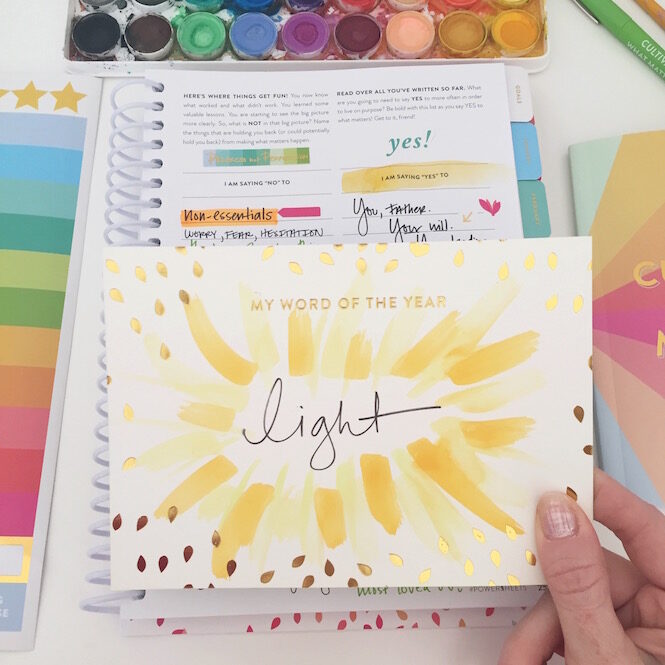 HERE'S WHERE THINGS GET FUN! You now know
what worked and what didn't work. You learned some
valuable lessons. You are starting to see the big
picture more clearly. So, what is NOT in that big picture? Name
the things that are holding you back (or could potentially
hold you back) from making what matters happen.
I AM SAYING "NO" TO
Non-essentials
WORRY, FEAR, HESITATION
READ OVER ALL YOU'VE WRITTEN SO FAR. What
are you going to need to say YES to more often in order
to live on purpose? Be bold with this list as you say YES to
what matters! Get to it, friend!
yes!
I AM SAYING "YES" TO
You, FATHER.
Your will.
GOALS
CULTIV
WHAT MA
MY WORD OF THE YEAR
light
most loved
#POWERSHEETS